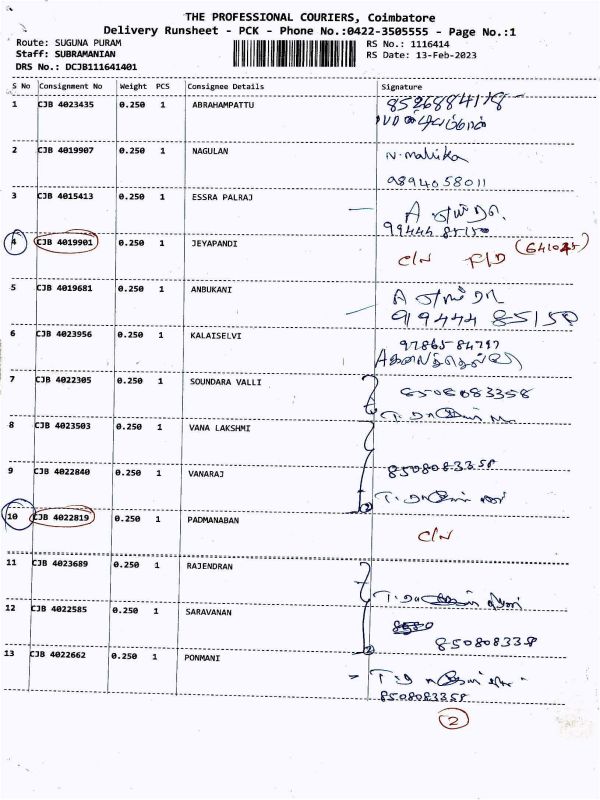 THE PROFESSIONAL COURIERS, Coimbatore
Delivery Runsheet - PCK - Phone No.:0422-3505555 - Page No.:1
Route: SUGUNA PURAM
RS No.: 1116414
Staff: SUBRAMANIAN
RS Date: 13-Feb-2023
DRS No.: DCJB111641401
S No Consignment No Weight PCS Consignee Details Signature
1 CJB 4023435 0.250 1 ABRAHAMPATTU
2 CJB 4019907 0.250 1 NAGULAN N. Mallika
9894058011
3 CJB 4015413 0.250 1 ESSRA PALRAJ A
99444 85150
4 CJB 4019901 0.250 1 JEYAPANDI C/N F/D
5 CJB 4019681 0.250 1 ANBUKANI A
919444 85150
6 CJB 4023956 0.250 1 KALAISELVI
7 CJB 4022305 0.250 1 SOUNDARA VALLI 8508083358
8 CJB 4023503 0.250 1 VANA LAKSHMI
9 CJB 4022840 0.250 1 VANARAJ 8508083358
10 CJB 4022819 0.250 1 PADMANABAN C/N
11 CJB 4023689 0.250 1 RAJENDRAN
12 CJB 4022585 0.250 1 SARAVANAN
850808338
13 CJB 4022662 0.250 1 PONMANI
8508083358
2